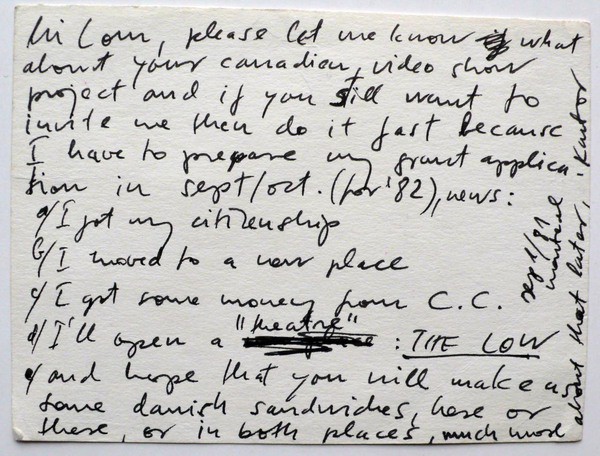 Hi Lom, please let me know what
about your canadian video show
project and if you still want to
invite me then do it fast because
I have to prepare my grant applica-
tion in sept/oct. (for '82), news:
a/ I got my citizenship
b/ I moved to a new place
c/ I got some money from C.C.
d/ I'll open a "theatre" : THE LOW
e/ and hope that you will make us
some danish sandwiches, here or
there, or in both places, much more
about that later, - Kantor
sep 1/81
montreal